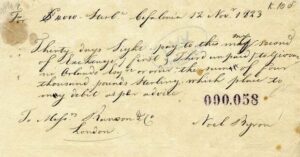 K. 10 §
£ 4000 Sterl. Cefalonia 12 Novr 1823
Thirty days Sight pay to this my second
of Exchange, first & third unpaid, to
or order the sum of four
thousand pounds Sterling, which place to
my debit as per advice
000,058
To Messrs Ransom & Co. Noel Byron
London